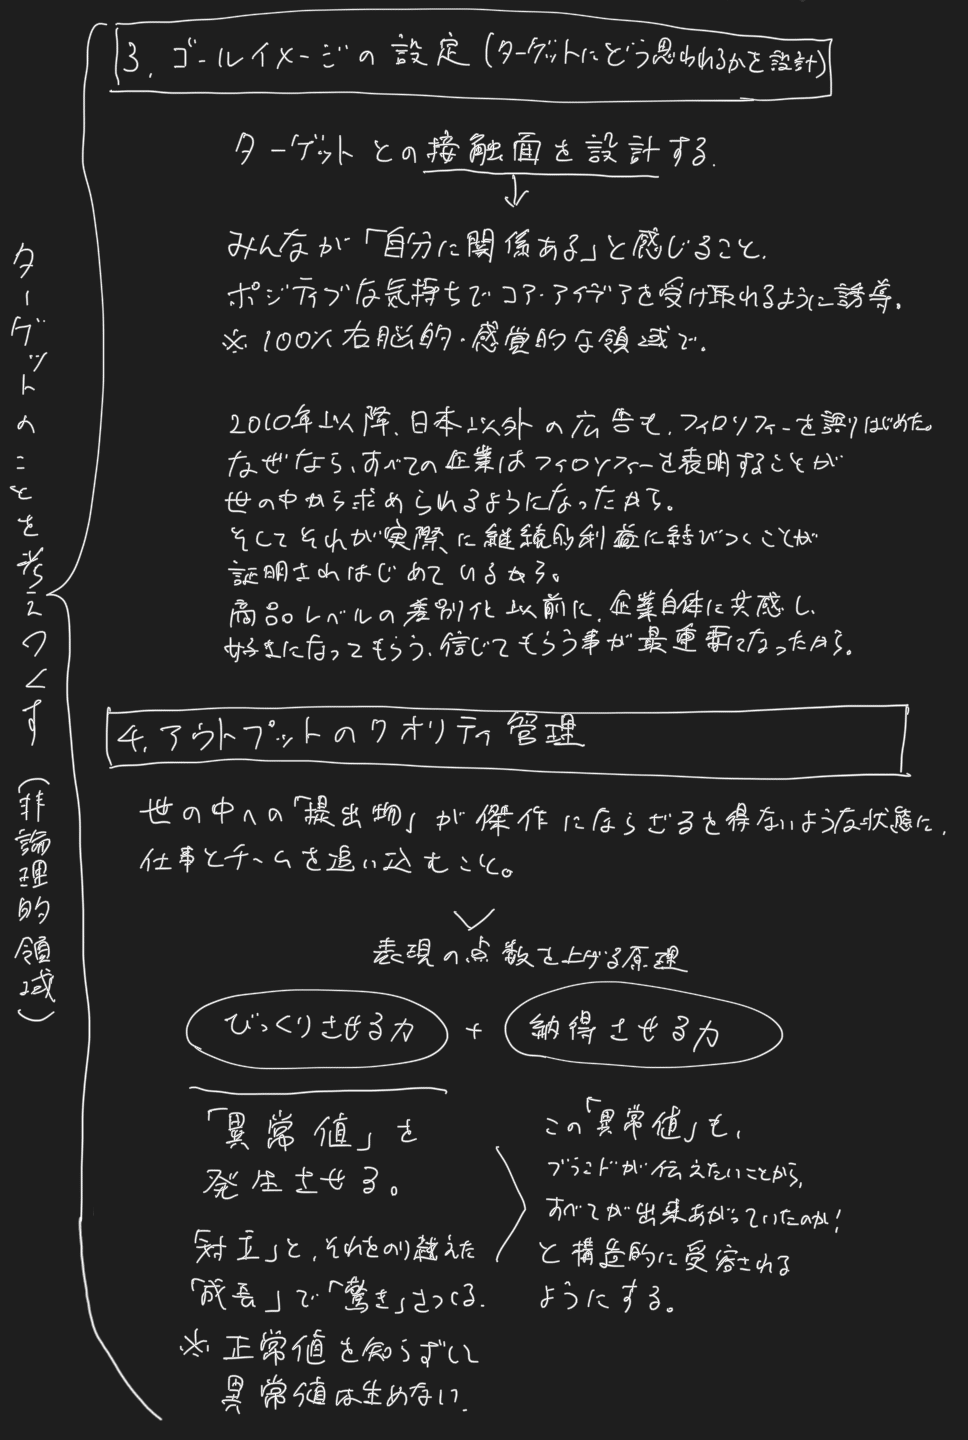 ターゲットのことを考えつくす（非論理的領域）
3. ゴールイメージの設定（ターゲットにどう思われるかを設計）
ターゲットとの接触面を設計する.
↓
みんなが「自分に関係ある」と感じること.
ポジティブな気持ちでコア・アイデアを受け取れるように誘導。
※ 100% 右脳的・感覚的な領域で.
2010年以降、日本以外の広告も、フィロソフィーを語りはじめた。
なぜなら、すべての企業はフィロソフィーを表明することが
世の中から求められるようになったから。
そしてそれが実際に継続的利益に結びつくことが
証明されはじめているから。
商品レベルの差別化以前に、企業自体に共感し、
好きになってもらう、信じてもらう事が最重要になったから。
4. アウトプットのクオリティ管理
世の中への「提出物」が傑作にならざるを得ないような状態に、
仕事とチームを追い込むこと。
表現の点数を上げる原理
びっくりさせる力 + 納得させる力
「異常値」を
発生させる。
「対立」と、それをのり越えた
「成長」で「驚き」をつくる.
※ 正常値を知らずして
異常値は生めない.
この「異常値」も、
ブランドが伝えたいことから、
すべてが出来あがっていたのか！
と構造的に受容される
ようにする。